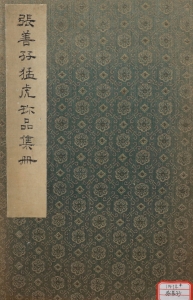 張善孖猛虎珍品集册